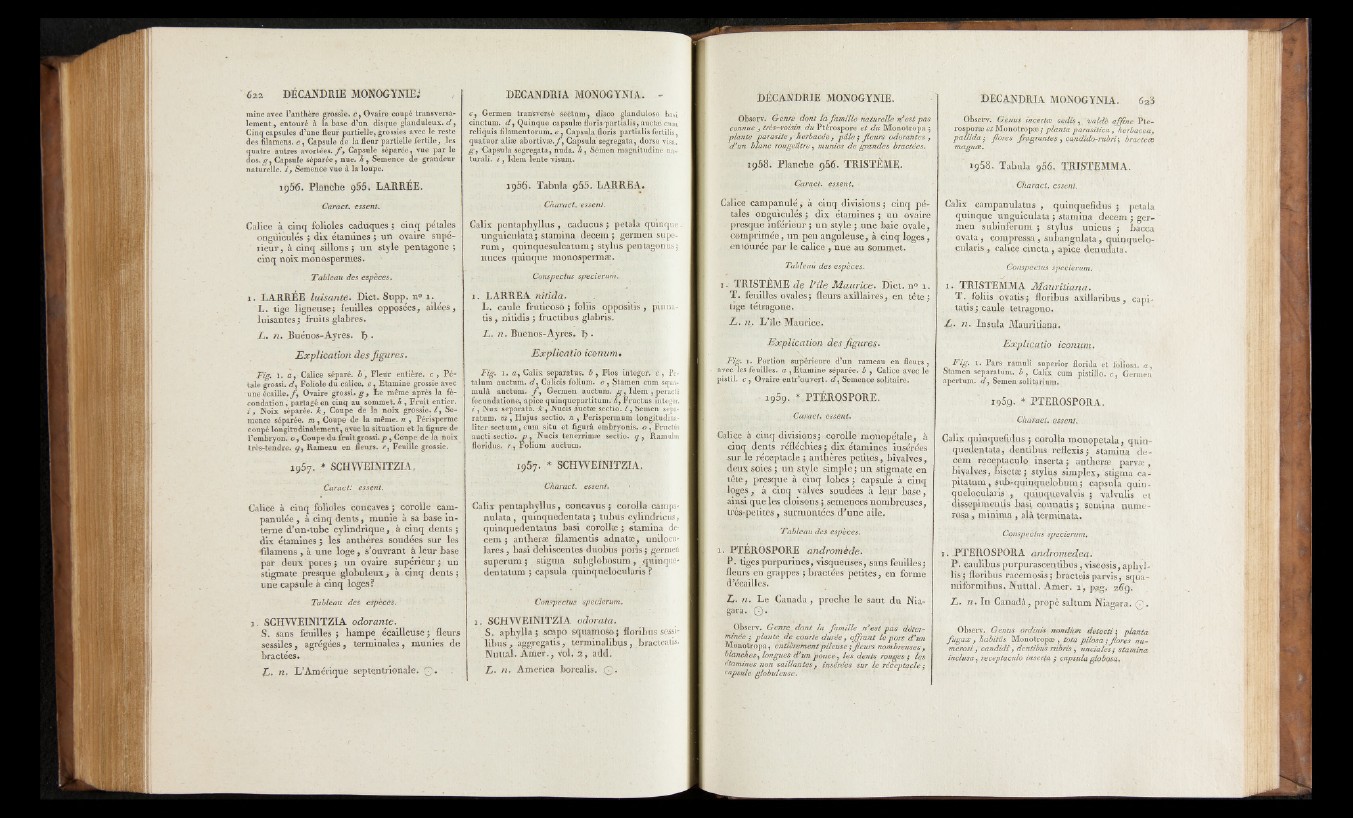 622 DÉCANDRIE MONOGYNIE.
mine avec l'anthère grossie. c, Ovaire coupé transversa-
lement, entouré à la base d'un disque glanduleux. d,
Cinq capsules d'une fleur partielle, grossies avec le reste
des filamens. e, Capsule de la fleur partielle fertile, les
quatre autres avortées. f, Capsule séparée, vue par le
dos. g, Capsule séparée, nue. h, Semence de grandeur
naturelle. i, Semence vue à la loupe.
1956. Planche 955. LARRÉE.
Caract. essent.
Calice à cinq folioles caduques ; cinq pétales
onguiculés ; dix étamines ; un ovaire supé-
rieur, à cinq sillons ; un style pentagone ;
cinq noix monospermes.
Tableau des espèces.
1. LARRÉE luisante. Dict. Supp. nº 1.
L. tige ligneuse ; feuilles opposées, ailées,
luisantes ; fruits glabres.
L. n. Buénos-Ayres. ♄.
Explication des figures.
Fig. 1. a, Calice séparé. b, Fleur entière. c, Pé-
tale grossi. d, Foliole du calice. e, Etamine grossie avec
une écaille. f, Ovaire grossi. g, Le même après la fé-
condation, partagé en cinq au sommet. h, Fruit entier.
i, Noix séparée. k, Coupe de la noix grossie. l, Se-
mence séparée. m, Coupe de la même. n, Périsperme
coupé longitudinalement, avec la situation et la figure de
l'embryon. o, Coupe du fruit grossi. p, Coupe de la noix
très-tendre. q, Rameau en fleurs. r, Feuille grossie.
1957. * SCHWEINITZIA.
Caract. essent.
Calice à cinq folioles concaves ; corolle cam-
panulée, à cinq dents, munie à sa base in-
terne d'un tube cylindrique, à cinq dents ;
dix étamines ; les anthères soudées sur les
filamens, à une loge, s'ouvrant à leur base
par deux pores ; un ovaire supérieur ; un
stigmate presque globuleux, à cinq dents ;
une capsule à cinq loges?
Tableau des espèces.
1. SCHWEINITZIA odorante.
S. sans feuilles ; hampe écailleuse ; fleurs
sessiles, agrégées, terminales, munies de
bractées.
L. n. L'Amérique septentrionale. ☉.
DECANDRIA MONOGYNIA.
c, Germen transversè sectum, disco glanduloso basi
cinctum. d, Quinque capsulæ floris partialis, auctæ cum
reliquis filamentorum. e, Capsula floris partialis fertilis,
quatuor aliæ abortivæ. f, Capsula segregata, dorso visa.
g, Capsula segregata, nuda. h, Semen magnitudine na-
turali. i, Idem lente visum.
1956. Tabula 955. LARREA.
Charact. essent.
Calix pentaphyllus, caducus ; petala quinque
unguiculata ; stamina decem ; germen supe-
rum, quinquesulcatum ; stylus pentagonus ;
nuces quinque monospermæ.
Conspectus specierum.
1. LARREA nitida.
L. caule fruticoso ; foliis oppositis, pinna-
tis, nitidis ; fructibus glabris.
L. n. Buenos-Ayres. ♄.
Explicatio iconum.
Fig. 1. a, Calix separatus. b, Flos integer. c, Pe-
talum auctum. d, Calicis folium. e, Stamen cum squa-
mulâ auctum. f, Germen auctum. g, Idem, peractâ
fecundatione, apice quinquepartitum. h, Fructus integer.
i, Nux separata. k, Nucis auctæ sectio. l, Semen sepa-
ratum. m, Hujus sectio. n, Perispermum longitudina-
liter sectum, cum situ et figurâ embryonis. o, Fructûs
aucti sectio. p, Nucis tenerrimæ sectio. q, Ramulus
floridus. r, Folium auctum.
1957. * SCHWEINITZIA.
Charact. essent.
Calix pentaphyllus, concavus ; corolla campa-
nulata, quinquedentata ; tubus cylindricus,
quinquedentatus basi corollæ ; stamina de-
cem ; antheræ filamentis adnatæ, unilocu-
lares, basi dehiscentes duobus poris ; germen
superum ; stigma subglobosum, quinque-
dentatum ; capsula quinquelocularis?
Conspectus specierum.
1. SCHWEINITZIA odorata.
S. aphylla ; scapo squamoso ; floribus sessi-
libus, aggregatis, terminalibus, bracteatis.
Nuttal. Amer., vol. 2, add.
L. n. America borealis. ☉.
DÉCANDRIE MONOGYNIE.
Observ. Genre dont la famille naturelle n'est pas
connue, très-voisin du Ptérospore et du Monotropa ;
plante parasite, herbacée, pâle ; fleurs odorantes,
d'un blanc rougeâtre, munies de grandes bractées.
1958. Planche 956. TRISTÈME.
Caract. essent.
Calice campanulé, à cinq divisions ; cinq pé-
tales onguiculés ; dix étamines ; un ovaire
presque inférieur ; un style ; une baie ovale,
comprimée, un peu anguleuse, à cinq loges,
entourée par le calice, nue au sommet.
Tableau des espèces.
1. TRISTÈME de l'île Maurice. Dict. nº 1.
T. feuilles ovales ; fleurs axillaires, en tête ;
tige tétragone.
L. n. L'île Maurice.
Explication des figures.
Fig. 1. Portion supérieure d'un rameau en fleurs,
avec les feuilles. a, Etamine séparée. b, Calice avec le
pistil. c, Ovaire entr'ouvert. d, Semence solitaire.
1959. * PTÉROSPORE.
Caract. essent.
Calice à cinq divisions ; corolle monopétale, à
cinq dents réfléchies ; dix étamines insérées
sur le réceptacle ; anthères petites, bivalves,
deux soies ; un style simple ; un stigmate en
tête, presque à cinq lobes ; capsule à cinq
loges, à cinq valves soudées à leur base,
ainsi que les cloisons ; semences nombreuses,
très-petites, surmontées d'une aile.
Tableau des espèces.
1. PTÉROSPORE andromède.
P. tiges purpurines, visqueuses, sans feuilles ;
fleurs en grappes ; bractées petites, en forme
d'écailles.
L. n. Le Canada, proche le saut du Nia-
gara. ☉.
Observ. Genre dont la famille n'est pas déter-
minée ; plante de courte durée, offrant le port d'un
Monotropa, entièrement pileuse ; fleurs nombreuses,
blanches, longues d'un pouce, les dents rouges ; les
étamines non saillantes, insérées sur le réceptacle ;
capsule globuleuse.
DECANDRIA MONOGYNIA. 623
Observ. Genus incertæ sedis, valdè affine Pte-
rosporæ et Monotropæ ; planta parasitica, herbacea,
pallida ; flores fragrantes, candido-rubri ; bracteæ
magnæ.
1958. Tabula 956. TRISTEMMA.
Charact. essent.
Calix campanulatus, quinquefidus ; petala
quinque unguiculata ; stamina decem ; ger-
men subinferum ; stylus unicus ; bacca
ovata, compressa, subangulata, quinquelo-
cularis, calice cincta, apice denudata.
Conspectus specierum.
1. TRISTEMMA Mauritiana.
T. foliis ovatis ; floribus axillaribus, capi-
tatis ; caule tetragono.
L. n. Insula Mauritiana.
Explicatio iconum.
Fig. 1. Pars ramuli superior florida et foliosa. a,
Stamen separatum. b, Calix cum pistillo. c, Germen
apertum. d, Semen solitarium.
1959. * PTEROSPORA.
Charact. essent.
Calix quinquefidus ; corolla monopetala, quin-
quedentata, dentibus reflexis ; stamina de-
cem receptaculo inserta ; antheræ parvæ,
bivalves, bisetæ ; stylus simplex, stigma ca-
pitatum, sub-quinquelobum ; capsula quin-
quelocularis, quinquevalvis ; valvulis et
dissepimentis basi connatis ; semina nume-
rosa, minima, alâ terminata.
Conspectus specierum.
1. PTEROSPORA andromedea.
P. caulibus purpurascentibus, viscosis, aphyl-
lis ; floribus racemosis ; bracteis parvis, squa-
miformibus. Nuttal. Amer. 1, pag. 269.
L. n. In Canadâ, propè saltum Niagara. ☉.
Observ. Genus ordinis nondùm detecti ; planta
fugax, habitûs Monotropæ, tota pilosa ; flores nu-
merosi, candidi, dentibus rubris, unciales ; stamina
inclusa, receptaculo inserta ; capsula globosa.